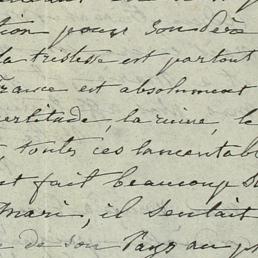 tion pour son
la tristesse est partout
France est absolument
ertitude, la ruine, le
, toutes ces lamentabl
t fait beaucoup s
mari, il sentait
de son Pays au p